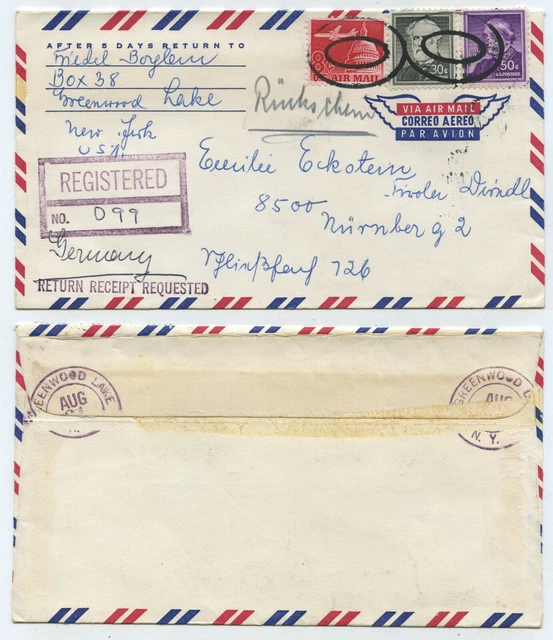 AFTER 5 DAYS RETURN TO
Friedel Borglum
Box 38
Greenwood Lake
New York
USA
8¢
US AIR MAIL
30¢
50¢
U.S. POSTAGE
Rückschein
VIA AIR MAIL
CORREO AEREO
PAR AVION
REGISTERED
NO. 099
Eckstein
Tiroler Dirndl
8500
Nürnberg 2
126
Germany
RETURN RECEIPT REQUESTED
GREENWOOD LAKE
AUG
GREENWOOD L
AUG
N. Y.